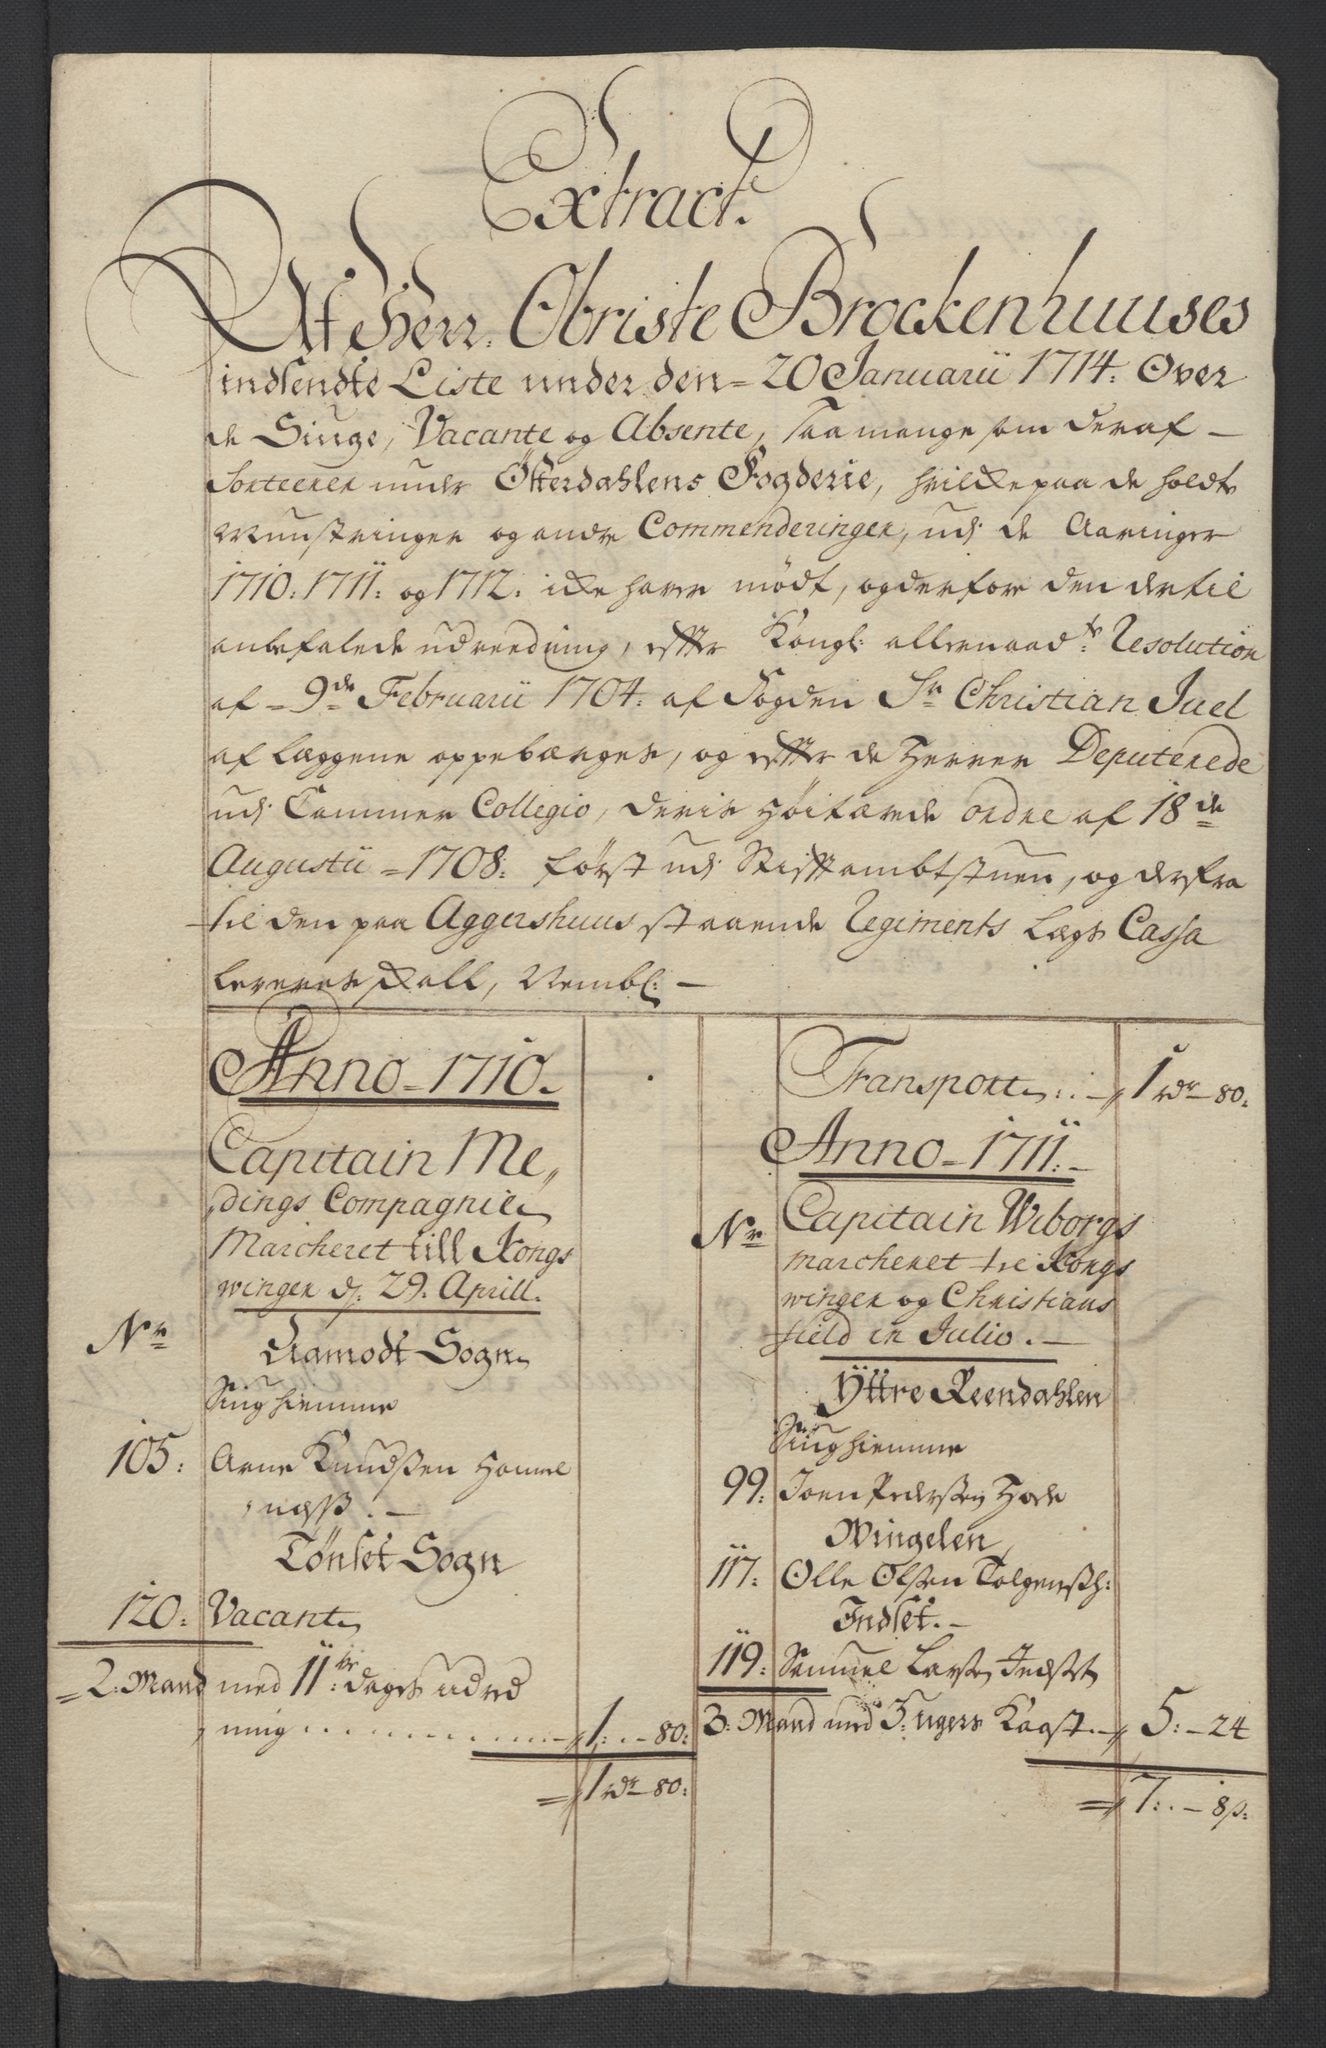 Extract.
Af Herr. Obriste Brockenhuuses
indsendte Liste under den 20 Januarii 1714. Over
de Siuge, Vacante og Absente, saa mange som deraf
Sorterer under Østerdahlens Fogderie, hvilke paa de holdte
Munstringer og andre Commenderinger, udj de Aaringer
1710. 1711. og 1712. icke hafver mødt, og derfore den dertil
anbefalede udreedning, efter Kongl: allernaad.te Resolution
af 9de Februarii 1704. af Fogden Sr Christian Juel
af Læggene oppebærges, og efter de Herrer Deputerede
udj Cammer Collegio, deris Høitærede ordre af 18de
Augustii 1708: først udj Stiftambtstuen, og derfra
til den paa Aggershuus staaende Regiments Lægs Cassa
leveres skall, Nembl: –
Anno 1710.
Capitain Me,,
dings Compagnie
Marcheret till Kongs
winger d. 29. Aprill.
Nr
Aamodt Sogn
Siug hiemme
105: Arne Knudsen Hommel
næss. –
Tönset Sogn
120: Vacant
2: Mand med 11 te dages udred
ning ........ 1: – 80:
1 rdr 80:
Transport: 1 rdr 80:
Anno 1711.
Nr Capitain Wiborgs
marcheret til Kongs
winger og Christians
field in Julio. –
Yttre Reendahlen
Siug hiemme
99: Joen Pedersen Hode
Wingelen
117: Olle Olsen Tolgensh:
Indset. –
119: Samuel Larsen Indset
3: Mand med 3: ugers Kaast. – 5: – 24
7: – 8 s: